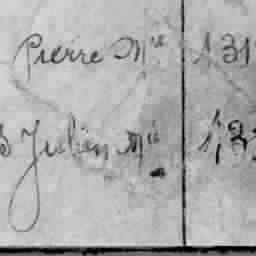 Pierre Mie 131
Julien Mie 1,33